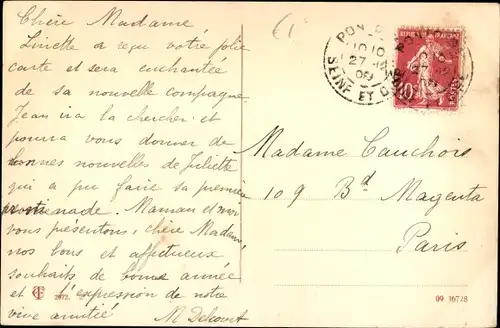 Chère Madame
Linette a reçu votre jolie
carte et sera enchantée
de sa nouvelle compagne
Jean ira la chercher et
pourra vous donner de
bonnes nouvelles de Juliette
qui a pu faire sa première
promenade. Maman et moi
vous présentons, chère Madame,
nos bons et affectueux
souhaits de bonne année
et l'expression de notre
vive amitié
M Delcourt
2072.
10
27
09
SEINE ET
10
Madame Cauchois
109 Bd Magenta
Paris
09 16728